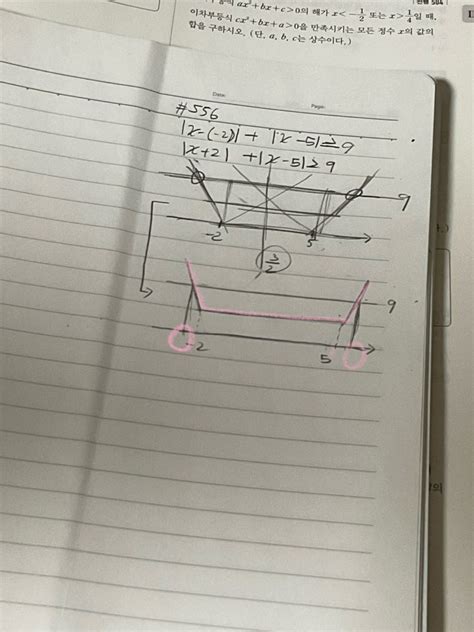 이차부등식 ax²+bx+c>0의 해가 x<-1/2 또는 x>1/4일 때,
이차부등식 cx²+bx+a>0을 만족시키는 모든 정수 x의 값의
합을 구하시오. (단, a, b, c는 상수이다.)
Date:
Page:
#556
|x-(-2)| + |x-5|≥9
|x+2| + |x-5|≥9
9
-2
5
3/2
9
-2
5